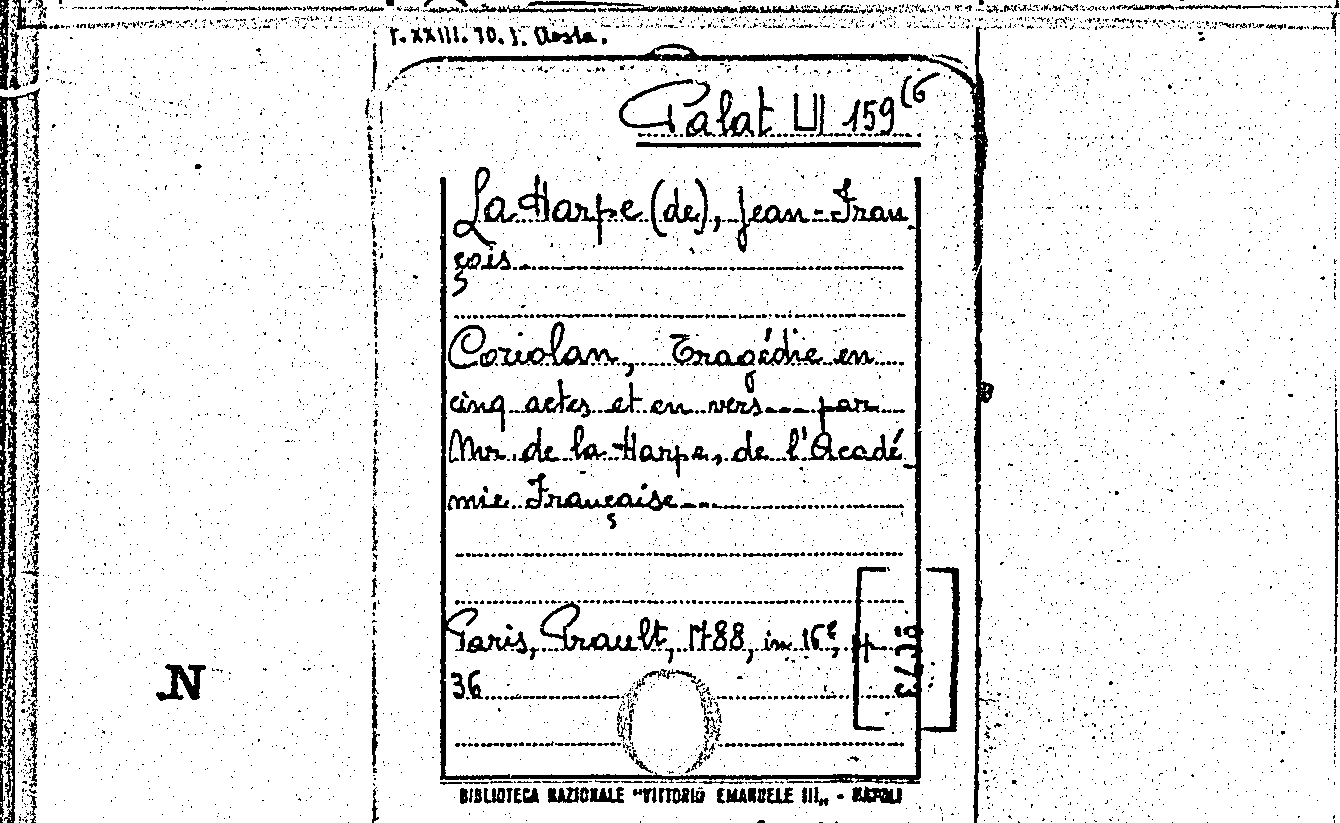 Palat LII 159(6
La Harpe (de), Jean-Fran
çois
Coriolan, Tragédie en
cinq actes et en vers... par
Mr. de la Harpe, de l'Acadé
mie Française...
Paris, Prault, 1788, in 16º, pp
36
N
BIBLIOTECA NAZIONALE "VITTORIO EMANUELE III„ - NAPOLI